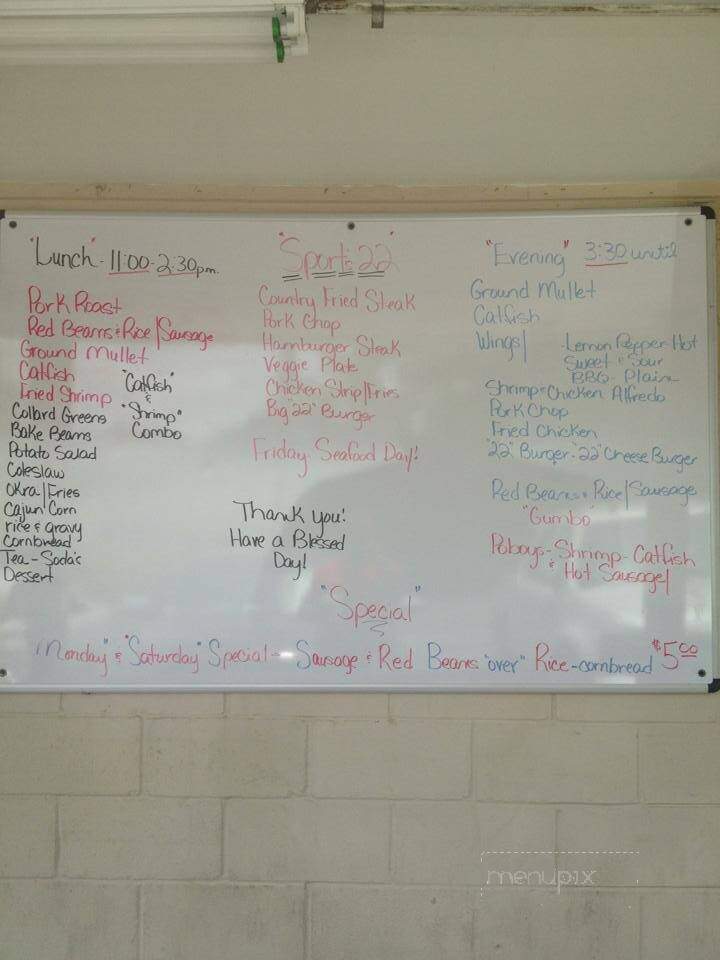 "Lunch" - 11:00-2:30pm
Pork Roast
Red Beans & Rice | Sausage
Ground Mullet
Catfish
Fried Shrimp
"Catfish"
&
"Shrimp"
Combo
Collard Greens
Bake Beans
Potato Salad
Coleslaw
Okra | Fries
Cajun Corn
rice & gravy
Cornbread
Tea - Soda's
Dessert
"Sport's 22"
Country Fried Steak
Pork Chop
Hamburger Steak
Veggie Plate
Chicken Strip | Fries
Big "22" Burger
Friday Seafood Day!
Thank you!
Have a Blessed
Day!
"Evening" 3:30 until
Ground Mullet
Catfish
Wings | - Lemon Pepper - Hot
Sweet & Sour
BBQ - Plain
Shrimp & Chicken Alfredo
Pork Chop
Fried Chicken
"22" Burger - "22" Cheese Burger
Red Beans & Rice | Sausage
"Gumbo"
Poboys - Shrimp - Catfish
& Hot Sausage |
"Special"
"Monday" & "Saturday" Special - Sausage & Red Beans "over" Rice - cornbread $5.00
menupix